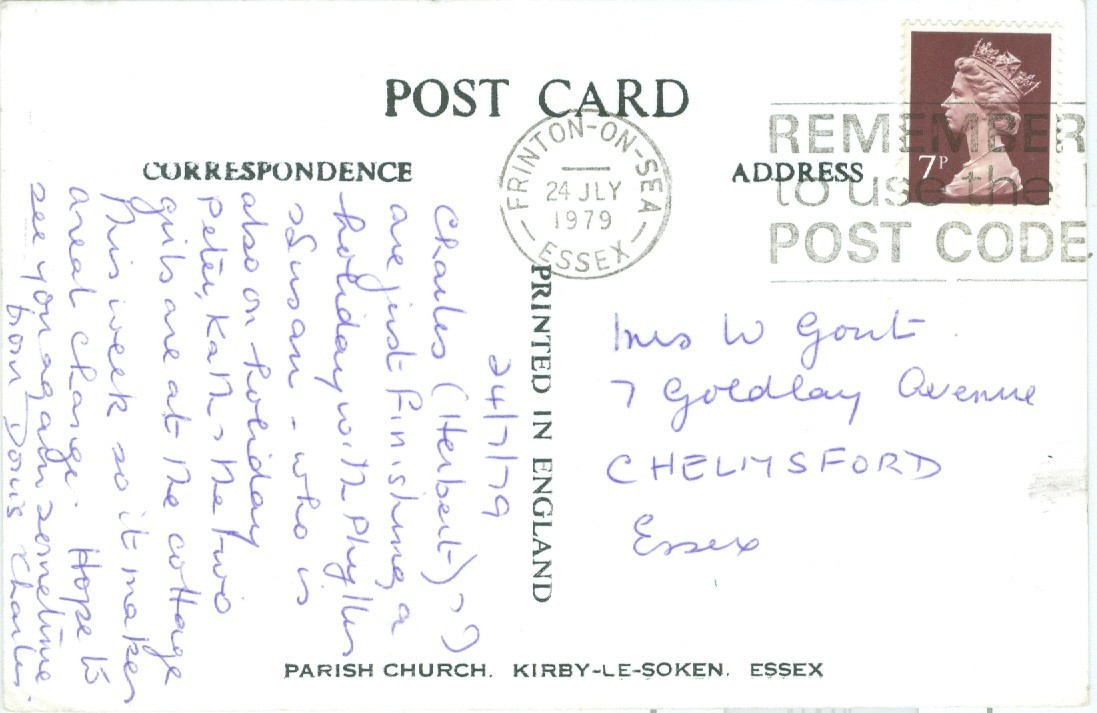 POST CARD
CORRESPONDENCE
ADDRESS
FRINTON-ON-SEA
24 JLY
1979
ESSEX
REMEMBER
to use the
POST CODE
7P
24/7/79
Charles (Herbert) & I
are just finishing a
holiday with Phyllis
& Susan - who is
also on holiday
Peter, Kath & the two
girls are at the cottage
this week so it makes
a real change. Hope to
see you again sometime
from Doris & Charles.
PRINTED IN ENGLAND
Mrs W Gont
7 Goldlay Avenue
CHELMSFORD
Essex
PARISH CHURCH. KIRBY-LE-SOKEN. ESSEX